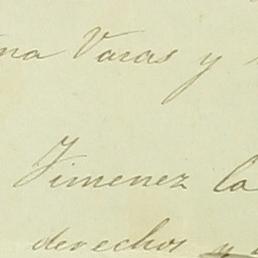 na Varas y
Jimenez la
derechos y